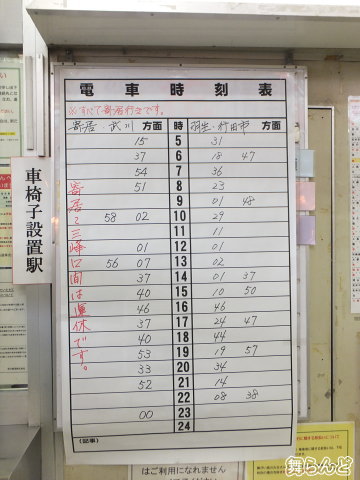 電車時刻表
※すべて寄居行きです。
寄居 武川 方面 時 羽生・行田市 方面
15 5 31
37 6 18 47
54 7 36
51 8 23
9 01 48
58 02 10 29
11 11
01 12 01
56 07 13 02
37 14 01 37
40 15 10 50
46 16 46
37 17 24 47
40 18 44
53 19 19 57
33 20 34
52 21 14
22 08 38
00 23
24
寄居〜三峰口間は運休です。
(記事)
車椅子設置駅
はご利用になれません
舞らんど